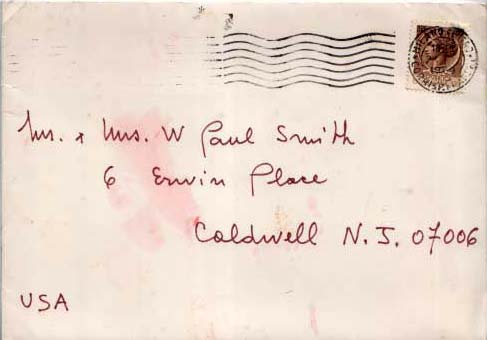 Mr. & Mrs. W Paul Smith
6 Erwin Place
Caldwell N.J. 07006
USA